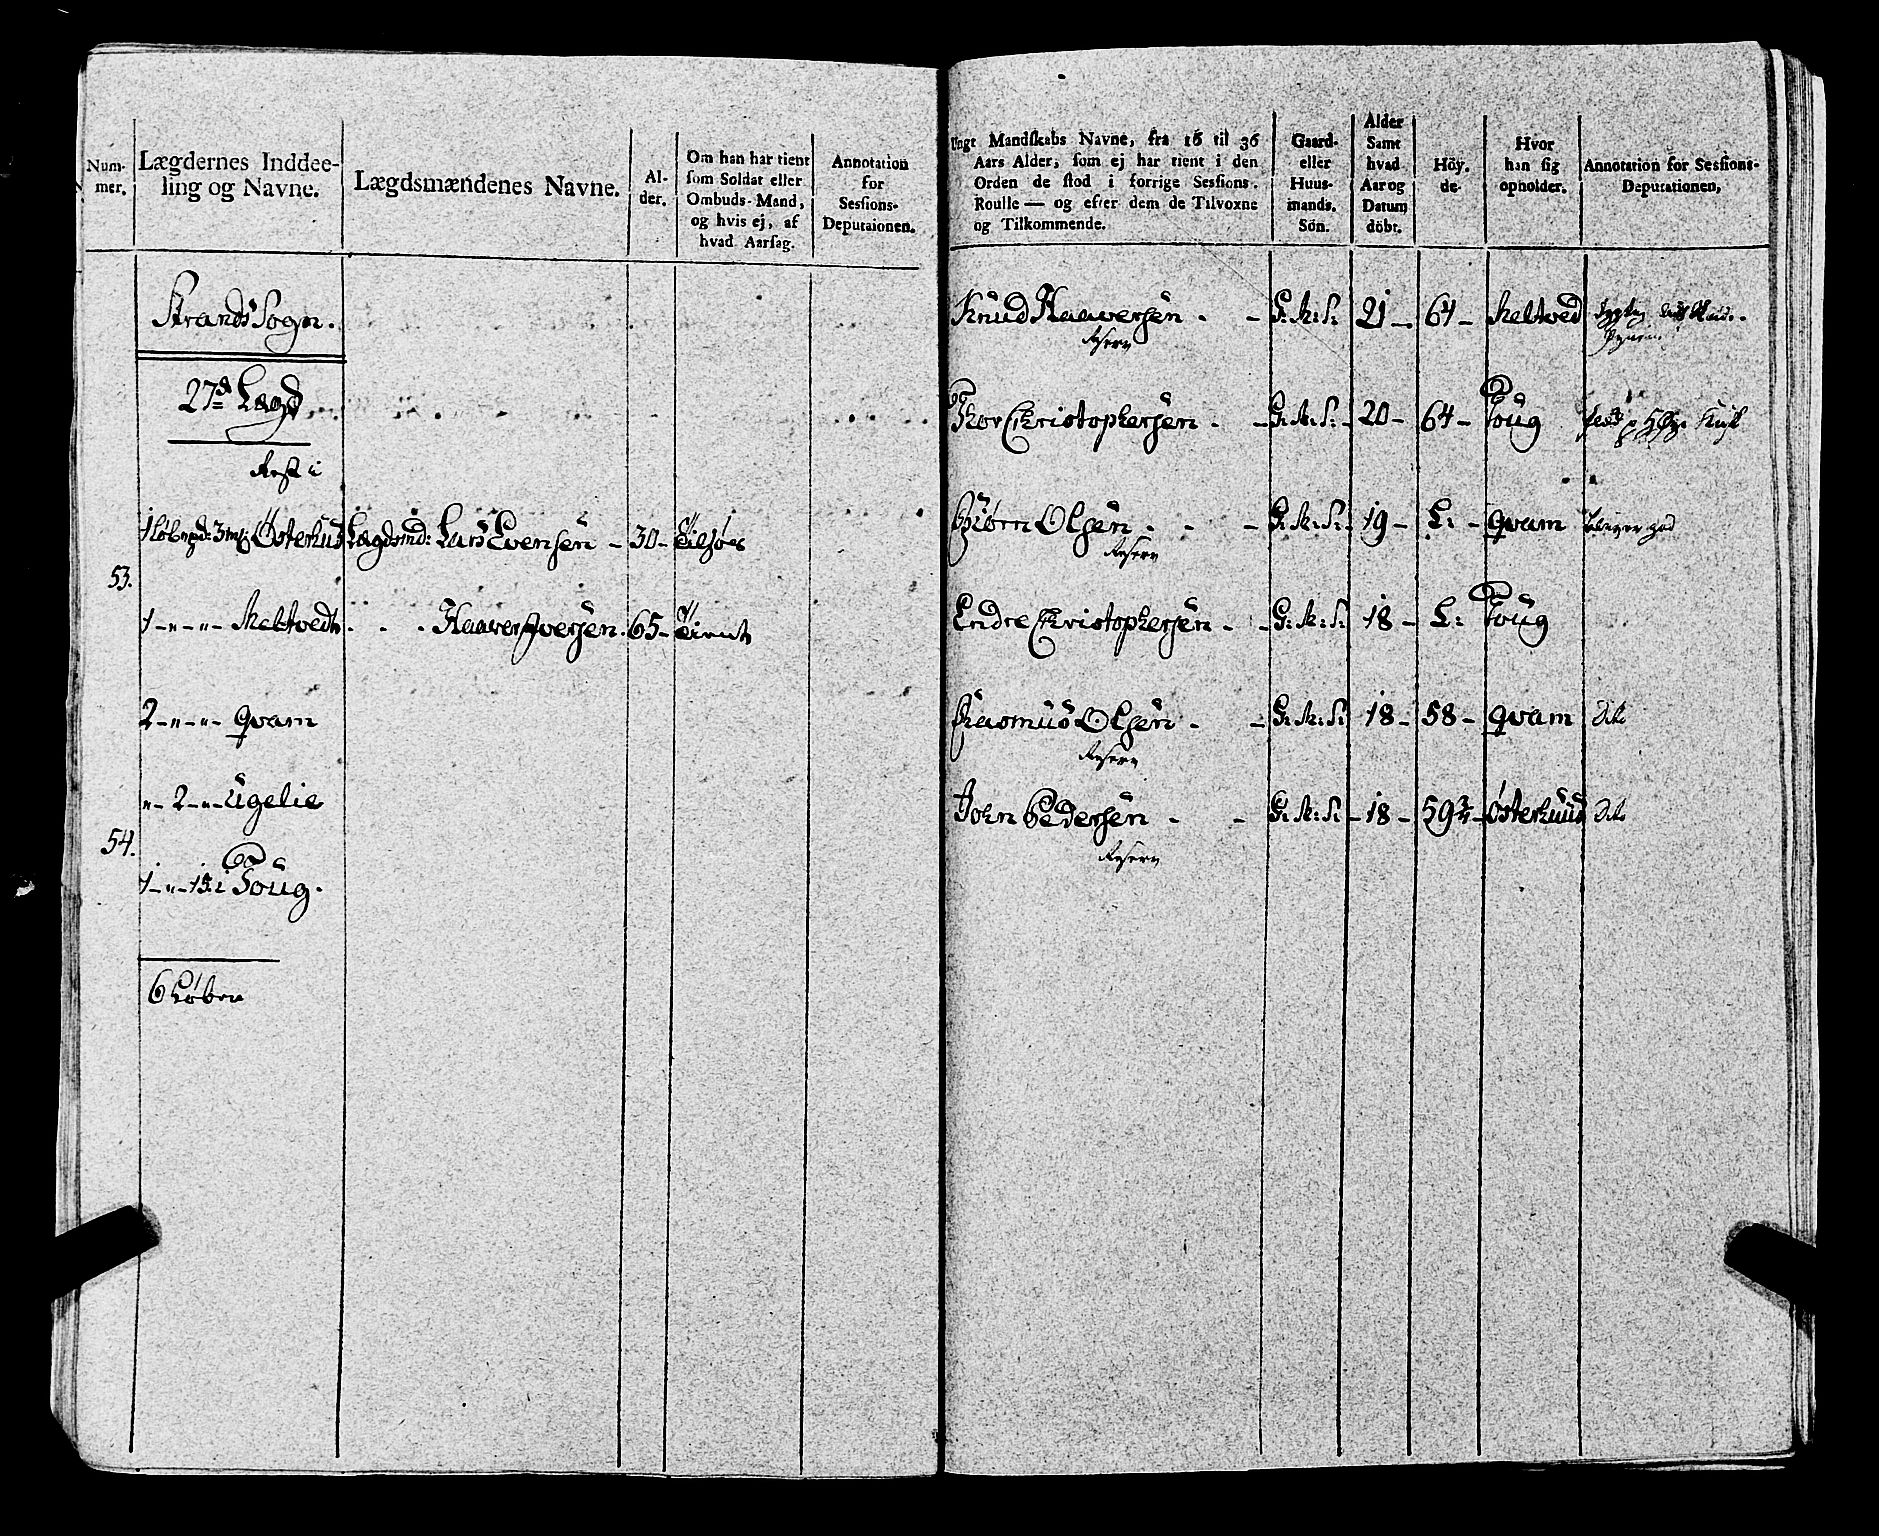 Num-
mer.
Lægdernes Inddee-
ling og Navne.
Lægdsmændenes Navne.
Al-
der.
Om han har tient
som Soldat eller
Ombuds-Mand,
og hvis ej, af
hvad Aarsag.
Annotation
for
Sessions-
Deputaionen.
Strands Sogn.
27de Lægd
Løbspd: 3 mk: Østerhus Lægdsmd: Lars Evensen - 30-
53.
1 - " - " - Meltvedt - - - Haaver Iversen. 65-
2 - " - " - Qvam
" - 2 - " - Ugelie
54.
1 - " - 15. i Toug.
6 Løber
Ungt Mandskabs Navne, fra 16 til 36
Aars Alder, som ej har tient i den
Orden de stod i forrige Sessions-
Roulle — og efter dem de Tilvoxne
og Tilkommende.
Gaard-
eller
Huus-
mands.
Søn.
Alder
Samt
hvad
Aar og
Datum
döbt.
Höy.
de.
Hvor
han sig
opholder.
Annotation for Sessions-
Deputationen,
Knud Haaversen - - G: M: S: 21 - 64 - Meltved
Reserv
Thor Christophersen - - G: M: S: - 20 - 64 - Toug
Biørn Olsen - - - G: M: S: - 19 - L: - Qvam
Reserv
Endre Christophersen - - G: M: S: - 18 - L: Toug
Rasmus Olsen - - G: M: S: - 18 - 58 - Qvam Dito
Reserv
John Pedersen - - G: M: S: - 18 - 59 3/4 - Østerhuus Dito
Reserv